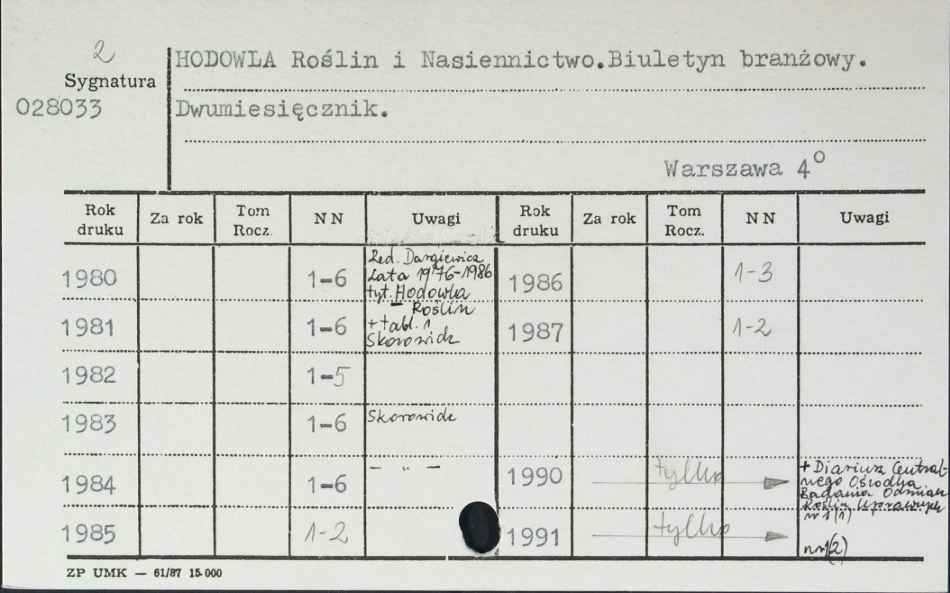 2
Sygnatura
028033
HODOWLA Roślin i Nasiennictwo.Biuletyn branżowy.
Dwumiesięcznik.
Warszawa 4°
Rok druku Za rok Tom Rocz. N N Uwagi Rok druku Za rok Tom Rocz. N N Uwagi
1980 1-6 Red. Dargiewicz
Lata 1976-1986
tyt. Hodowla
Roślin
1986 1-3
1981 1-6 + tabl. 1
Skorowidz
1987 1-2
1982 1-5
1983 1-6 Skorowidz
1984 1-6 — „ —
1990 tylko + Diariusz Central-
nego Ośrodka
Badania Odmian
Roślin Uprawnych
nr 1(1)
1985 1-2
1991 tylko nr 1(2)
ZP UMK — 61/87 15.000